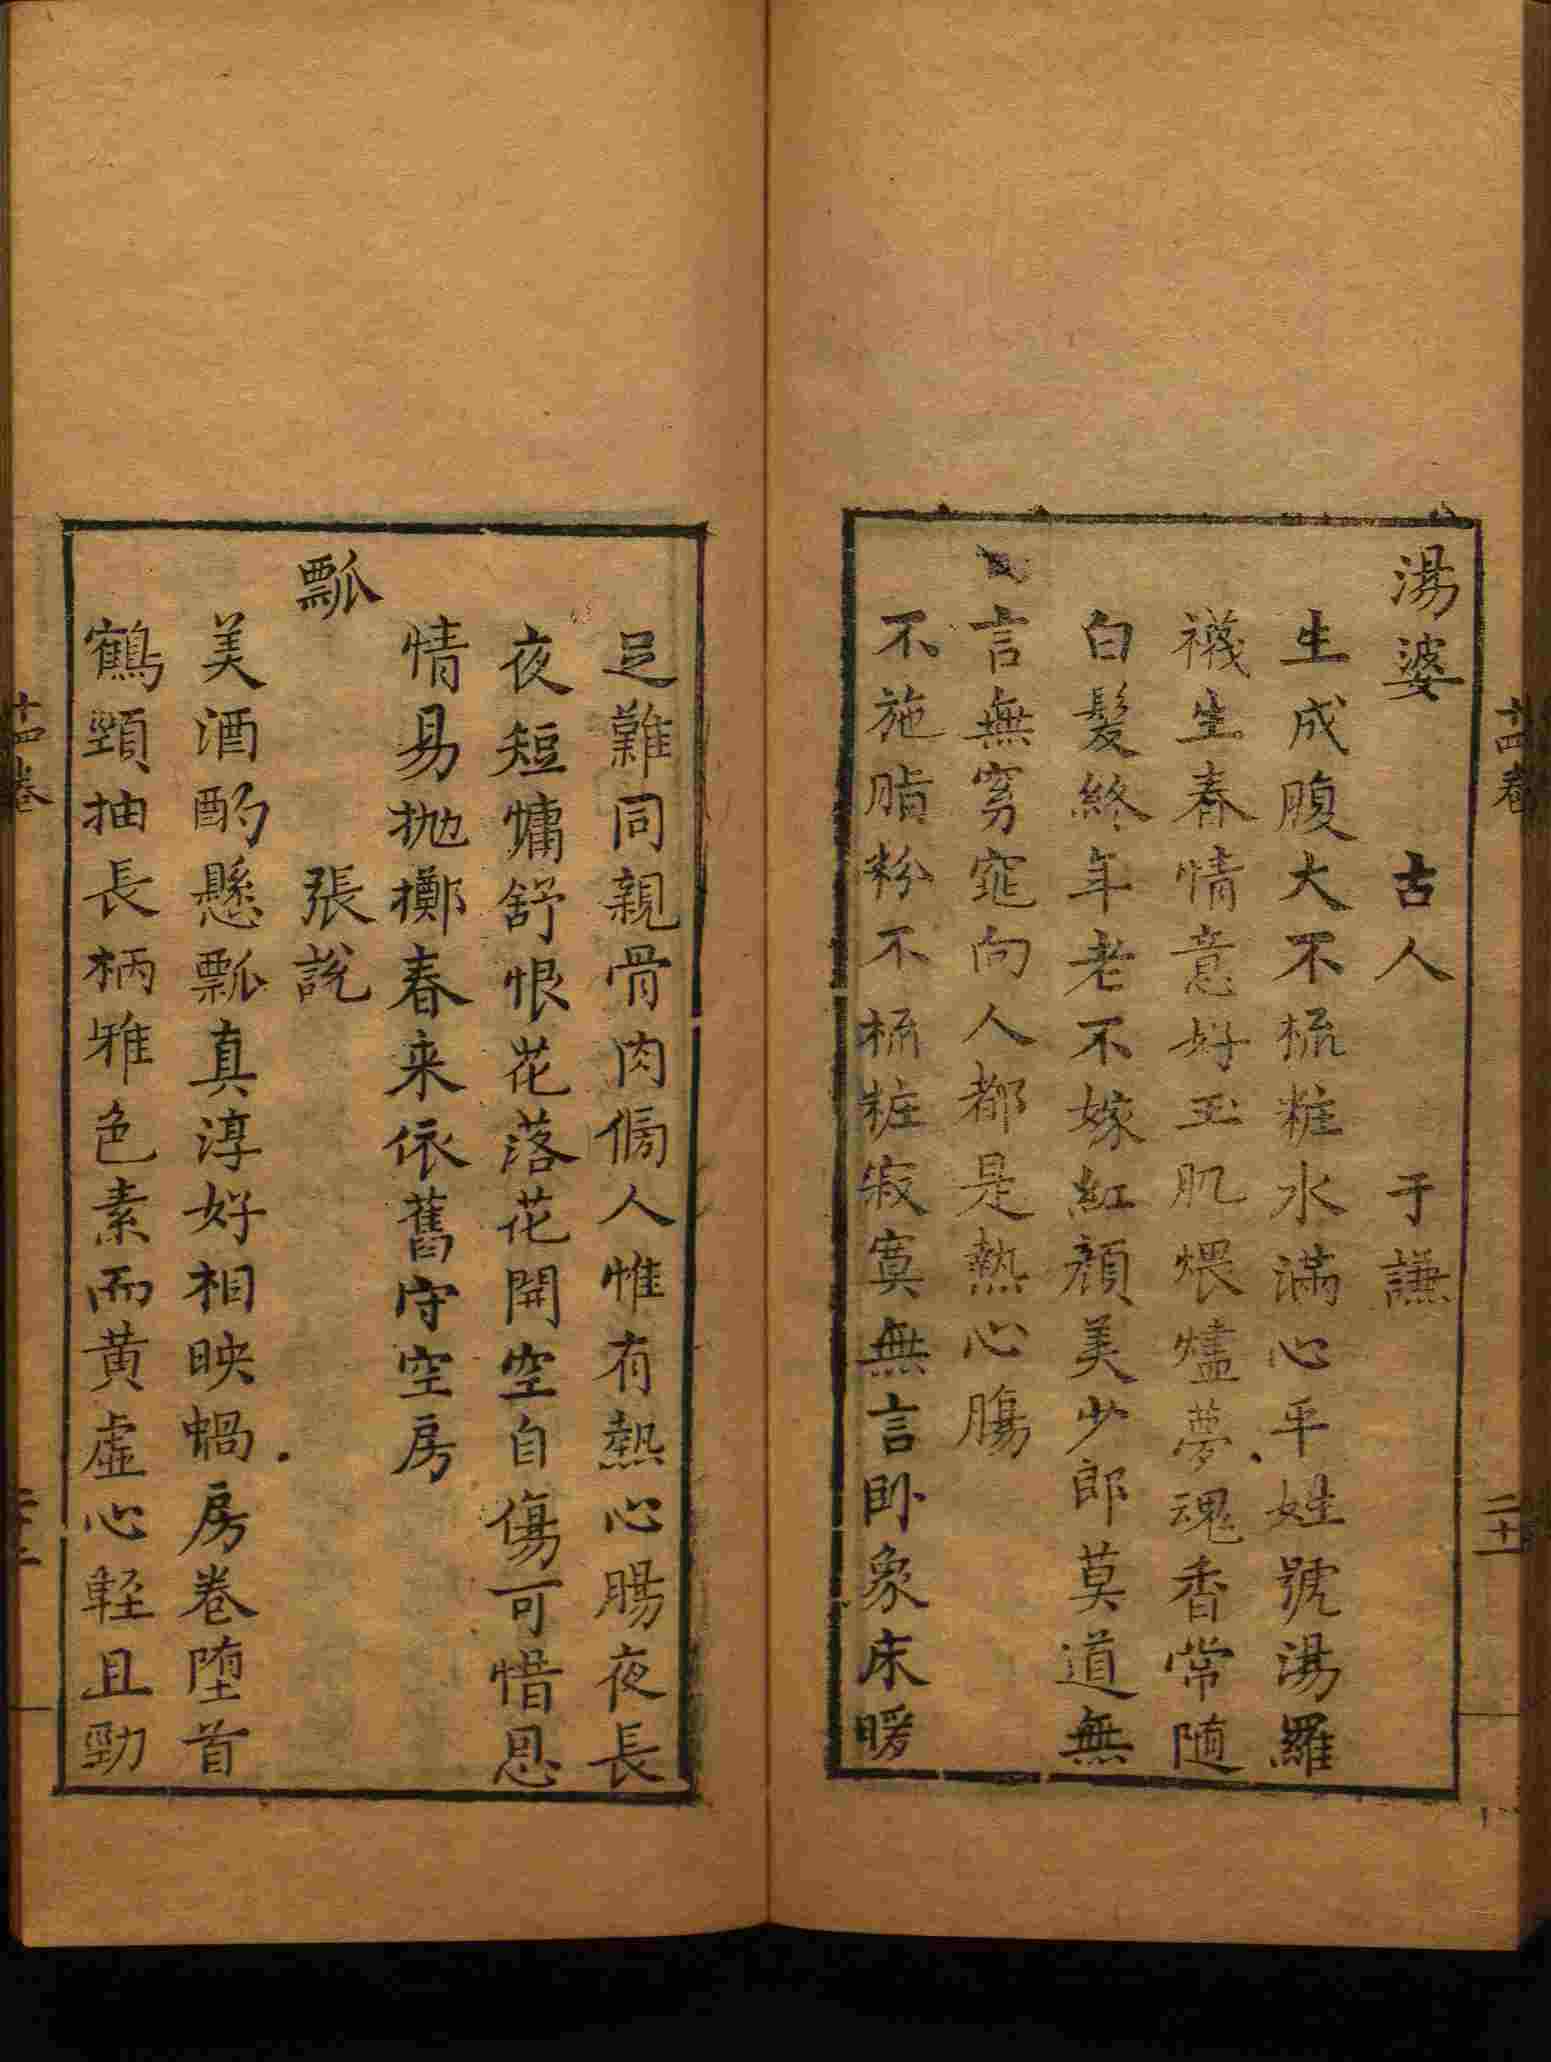 湯婆 古人 于謙
生成腹大不梳粧水滿心平姓號湯羅
襪生春情意好玉肌煨燼夢魂香常随
白髮終年老不嫁紅顏美少郎莫道無
言無窈窕向人都是熱心腸
不施脂粉不梳粧寂寞無言卧象床暖
足難同親骨肉傷人惟有熱心腸夜長
夜短慵舒恨花落花開空自傷可惜恩
情易抛擲春来依舊守空房
瓢
張說
美酒酌懸瓢真淳好相映蝸房卷堕首
鶴頸抽長柄雅色素而黄虛心輕且勁
十四卷
二十一
十四卷